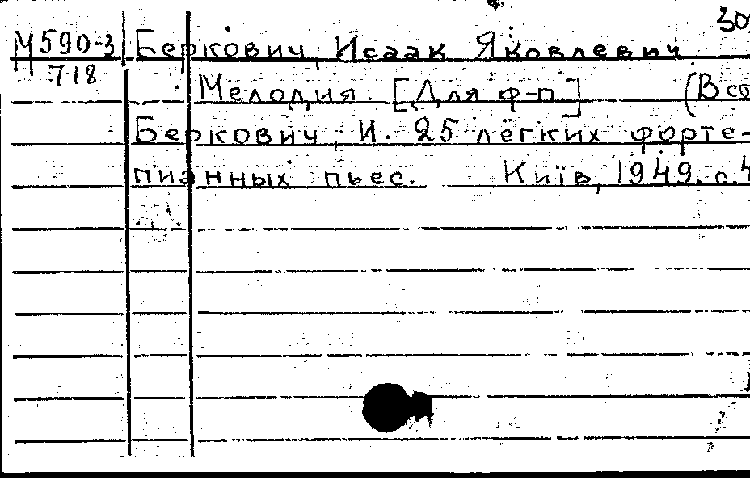 30
М590-3 Беркович, Исаак Яковлевич
718
Мелодия. [Для ф-п.] (В сб
Беркович, И. 25 легких форте-
пианных пьес. Київ, 1949. с.4